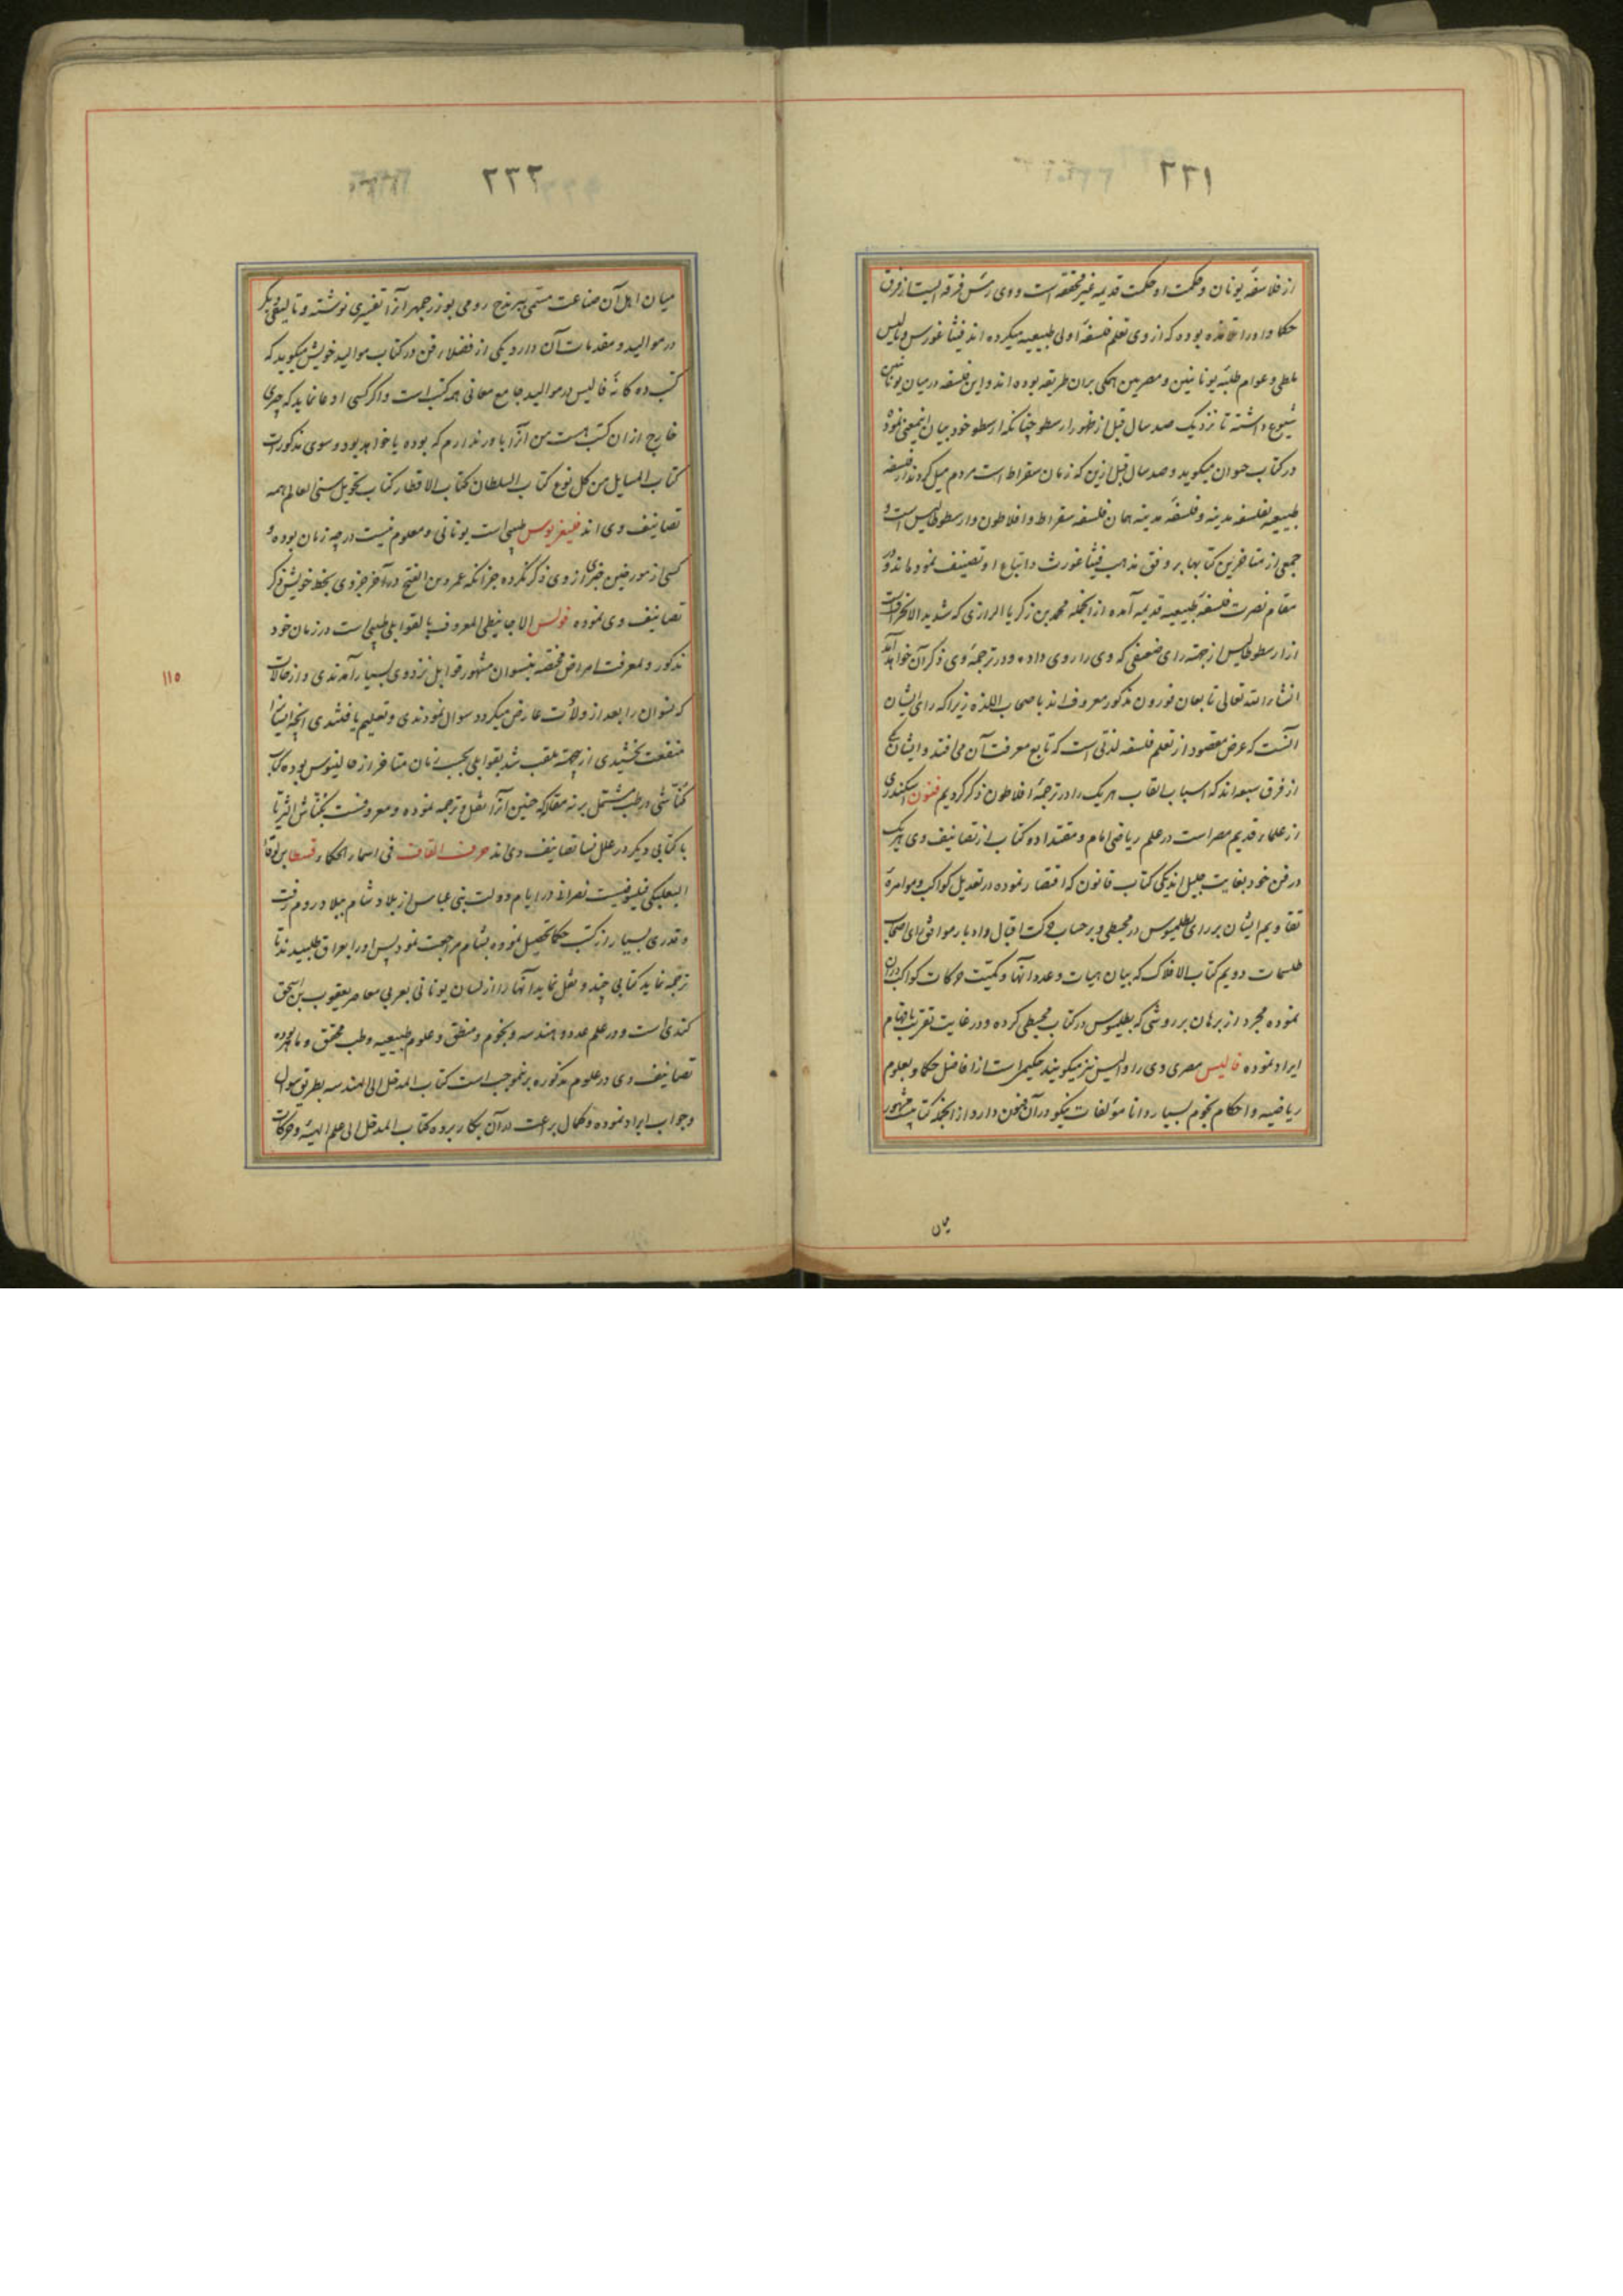 ٢٢١
از فلاسفهٔ یونان و حکمت او حکمت قدیمه غیر محققه است و وی رئیس فرقه ایست از فرق
حکما و او را تلامذه بوده که از وی تعلم فلسفهٔ اولی طبیعیه میکرده اند فیثاغورس و ثالیس
ملطی و عوام طلبهٔ یونانیین و مصریین همگی بران طریقه بوده اند و این فلسفه در میان یونانیین
شیوع داشته تا نزدیک صد سال قبل از ظهور ارسطو چنانکه ارسطو خود بیان اینمعنی نموده
در کتاب حیوان میگوید و صد سال قبل ازین که زمان سقراط است مردم میل کردند از فلسفه
طبیعیه بفلسفه مدینه و فلسفهٔ مدینه همان فلسفه سقراط و افلاطون و ارسطوطالیس است و
جمعی از متاخرین کتابها بر وفق مذهب فیثاغورث و اتباع او تصنیف نموده اند و در
مقام نصرت فلسفهٔ طبیعیه قدیمه آمده از انجمله محمد بن زکریا الرازی که شدید الانحرافست
از ارسطوطالیس از جهته رای ضعیفی که وی را روی داده و در ترجمهٔ وی ذکر آن خواهد آمد
انشاء الله تعالی تابعان فورون مذکور معروف اند باصحاب اللذه زیرا که رای ایشان
آنست که غرض مقصود از تعلم فلسفه لذتی است که تابع معرفت آن می افتد و ایشان یکی
از فرق سبعه اند که اسباب القاب هریک را در ترجمهٔ افلاطون ذکر کردیم فنون اسکندری
از علماء قدیم مصر است در علم ریاضی امام و مقتدا ده کتاب از تصانیف وی هریک
در فن خود بغایت جلیل اند یکی کتاب قانون که اقتصار نموده در تعدیل کواکب و موامرهٔ
تقاویم ایشان بر رای بطلمیوس در مجسطی و بر حساب حرکت اقبال و ادبار موافق رای اصحاب
طلسمات دویم کتاب الافلاک که بیان هیات و عدد آنها و کمیت حرکات کواکب دران
نموده مجرد از برهان بر روشی که بطلمیوس در کتاب مجسطی کرده و در غایت تقریب بافهام
ایراد نموده فالیس مصری وی را والیس نیز میگویند حکیمیست از افاضل حکما و بعلوم
ریاضیه و احکام نجوم بسیار دانا مؤلفات نیکو در آن فنون دارد از انجمله کتابیست مشهور
میان
٢٢٢
میان اهل آن صناعت مسمی ببریدج رومی بوزرجمهر آنرا تفسیری نوشته و تالیفی دیگر
در موالید و مقدمات آن دارد یکی از فضلاء فن در کتاب موالید خویش میگوید که
کتب ده کانهٔ فالیس در موالید جامع معانی همه کتب است و اگر کسی ادعا نماید که چیزی
خارج از ان کتب هست من آنرا باور ندارم که بوده یا خواهد بود و سوی مذکورات
کتاب المسایل من کل نوع کتاب السلطان کتاب الاقطار کتاب تحویل سنی العالم همه
تصانیف وی اند فیغریوس طبیبی است یونانی و معلوم نیست در چه زمان بوده و
کسی از مورخین خبری از وی ذکر نکرده جز انکه عمرو بن الفتح در آخر جزوی بخط خویش ذکر
تصانیف وی نموده فولس الاجانیطی المعروف بالقوابلی طبیبی است در زمان خود
مذکور و بمعرفت امراض مختصه بنسوان مشهور قوابل نزد وی بسیار آمدندی و از حالات
که نسوان را بعد از ولادت عارض میگردد سوال نمودندی و تعلیم یافتندی آنچه ایشانرا
منفعت بخشیدی ازینجهته ملقب شد بقوابلی بحسب زمان متاخر از جالینوس بوده کتاب
کناشی در طب مشتمل بر نه مقاله که حنین آنرا نقل و ترجمه نموده و معروفست بکناش الثریا
با کتابی دیگر در علل نسا تصانیف وی اند حرف القاف فی اسماء الحکماء قسطا بن لوقا
البعلبکی فیلسوفیست نصرانی در ایام دولت بنی عباس از بلاد شام ببلاد روم رفت
و قدری بسیار از کتب حکما تحصیل نموده بشام مراجعت نمود پس او را بعراق طلبیدند تا
ترجمه نماید کتابی چند و نقل نماید آنها را از لسان یونانی بعربی معاصر یعقوب بن اسحق
کندی است و در علم عدد و هندسه و نجوم و منطق و علوم طبیعیه و طب محقق و ماهر بوده
تصانیف وی در علوم مذکوره برینموجب است کتاب المدخل الی الهندسه بطریق سوال
و جواب ایراد نموده و کمال براعت در آن بکار برده کتاب المدخل الی علم الهیئه و حرکات
١١٥